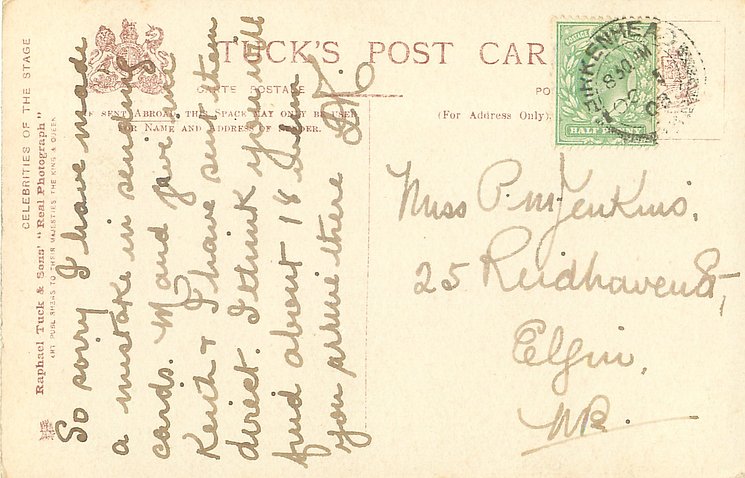 CELEBRITIES OF THE STAGE
Raphael Tuck & Sons' "Real Photograph"
ART PUBLISHERS TO THEIR MAJESTIES THE KING & QUEEN
TUCK'S POST CAR
CARTE POSTALE
PO
IF SENT ABROAD THIS SPACE MAY ONLY BE USED
FOR NAME AND ADDRESS OF SENDER.
(For Address Only).
POSTAGE
HALF PENNY
BIRKENHEAD
8 30 PM
OC 1
08
So sorry I have made
a mistake in sending
cards. M and give me
Keith & I have sent them
direct. I think you will
find about 18 when
you arrive there
Miss P. M. Jenkins,
25 Reidhaven St,
Elgin,
N.B.